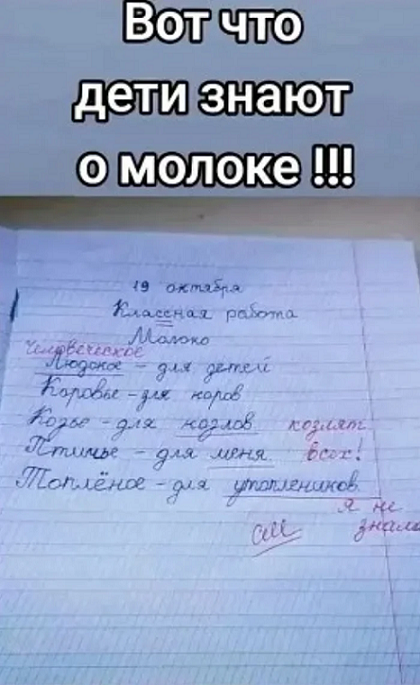 Вот что
дети знают
о молоке !!!
19 октября
Классная работа
Молоко
Человеческое
Людское - для детей
Коровье - для коров
Козье - для козлов козлят
Птичье - для меня всех!
Топлёное - для утоплеников
я не
знала
см